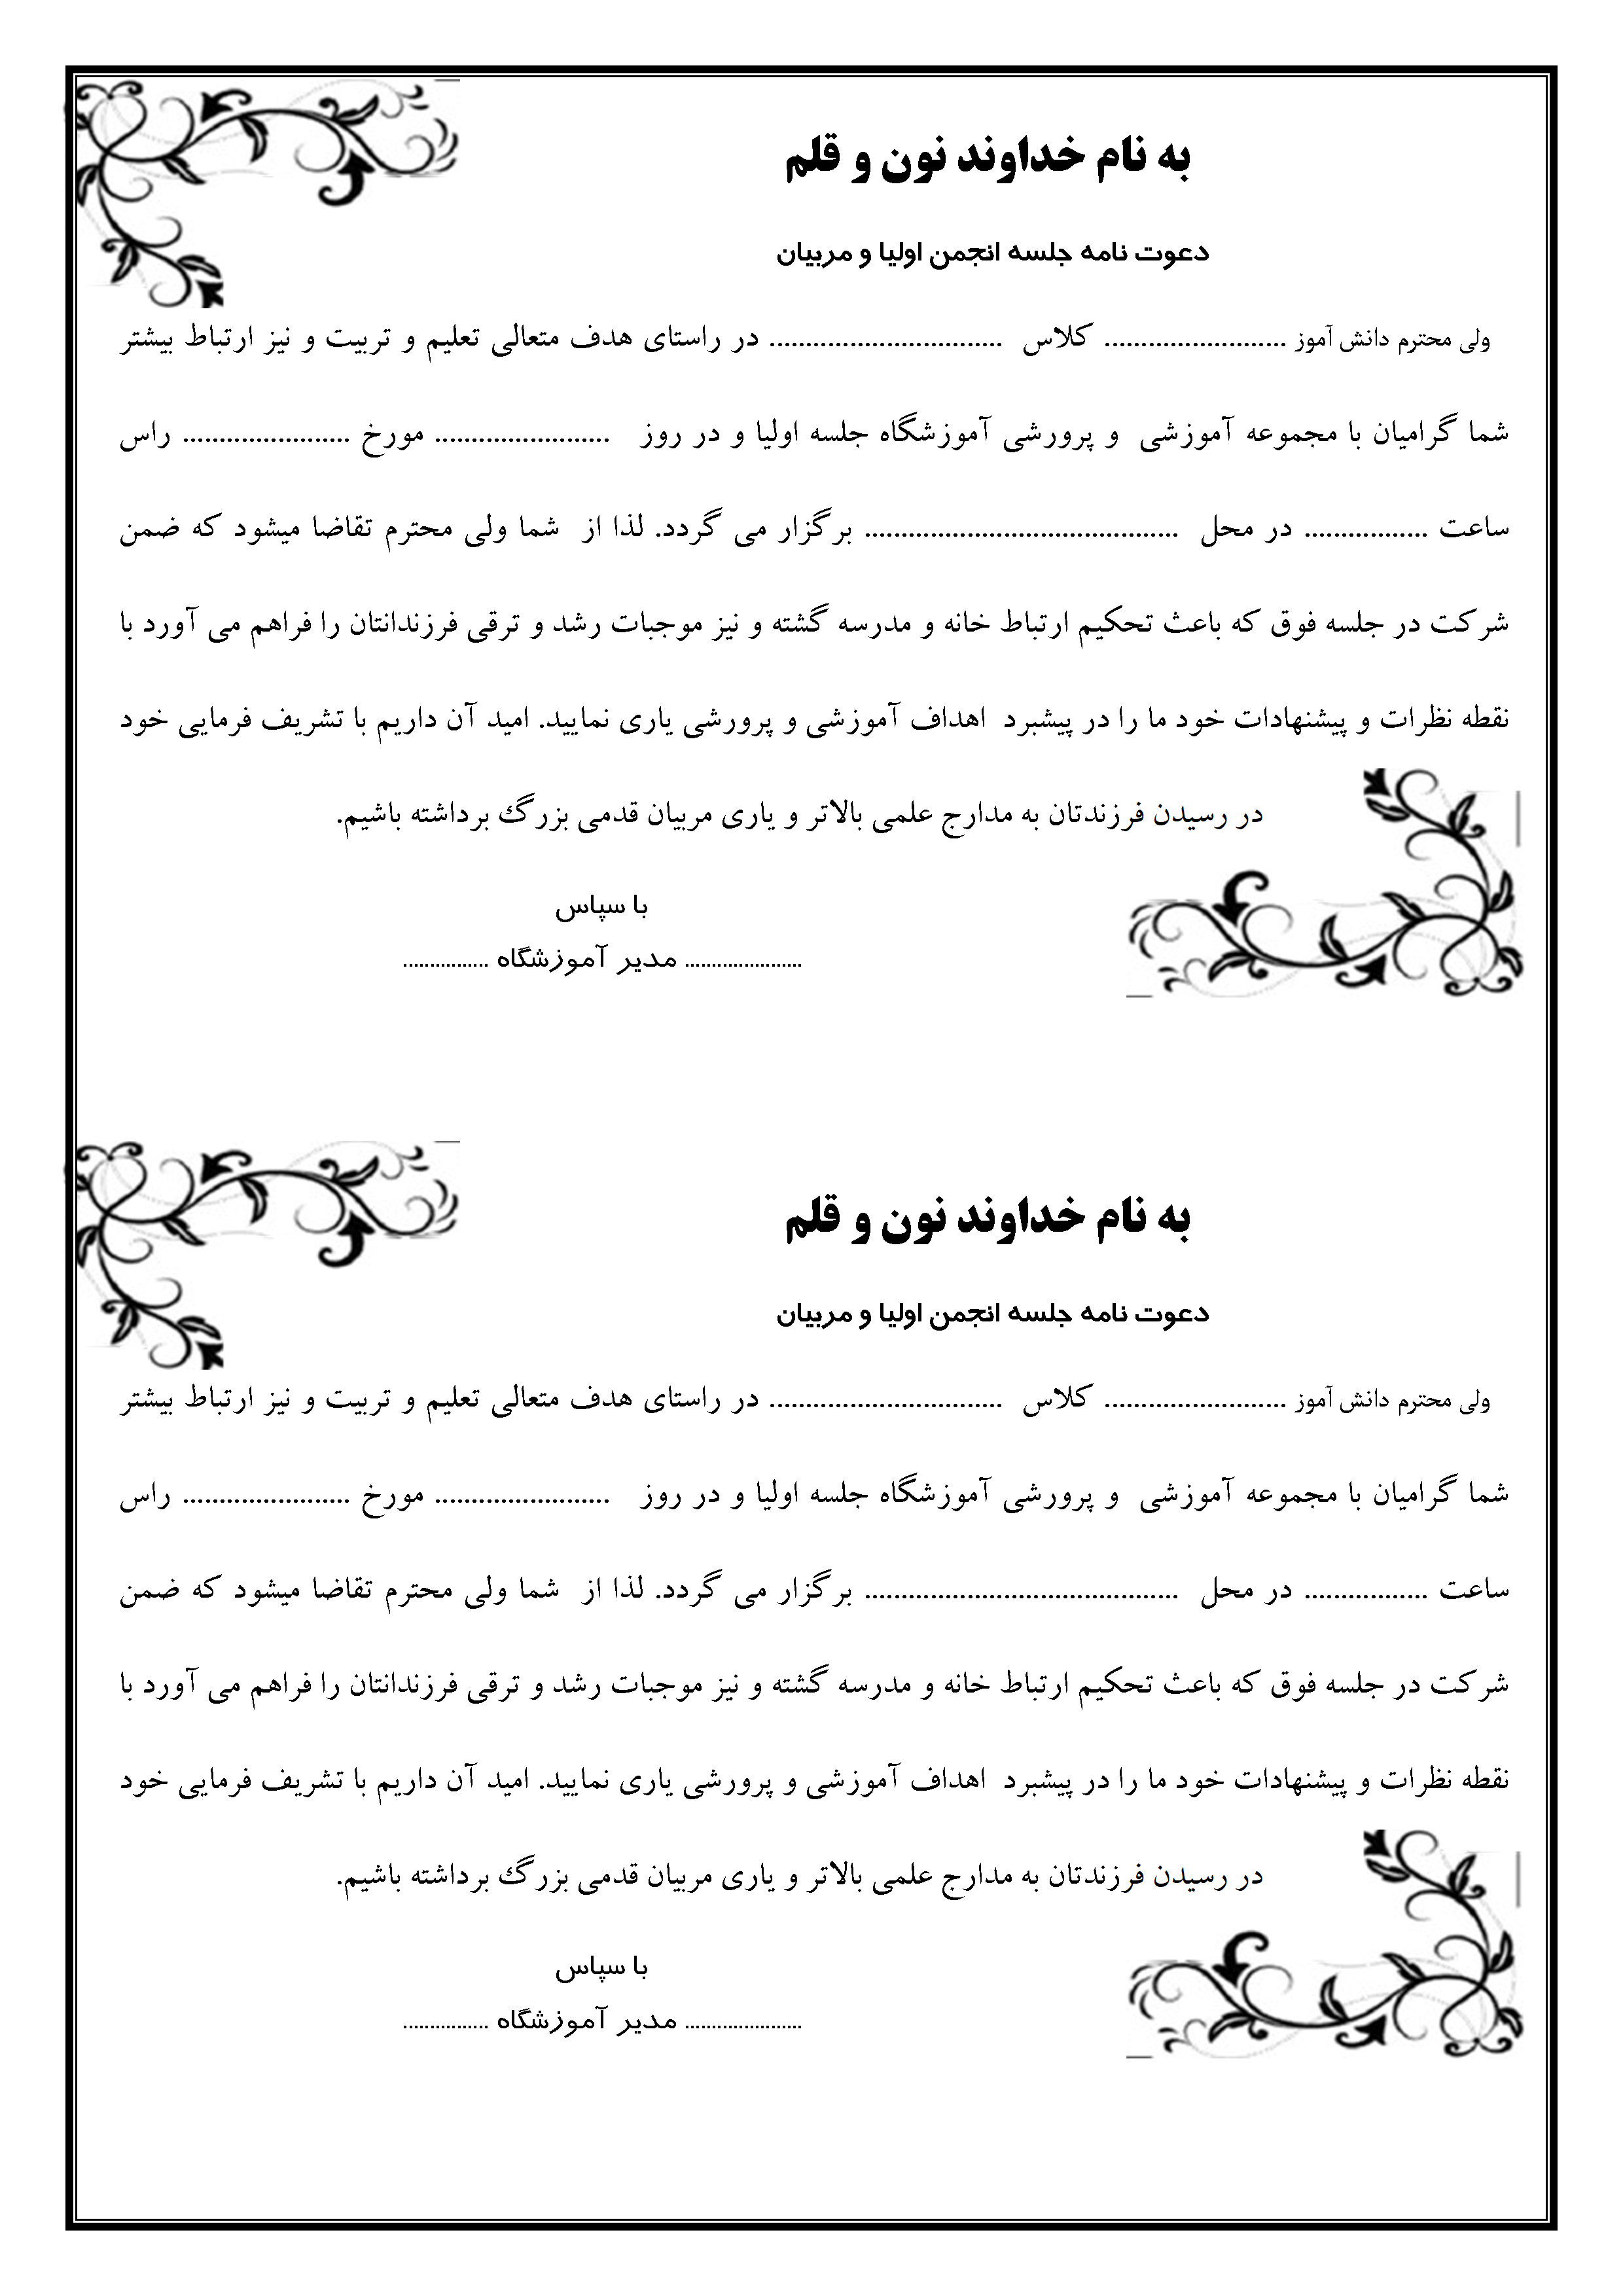 به نام خداوند نون و قلم
دعوت نامه جلسه انجمن اولیا و مربیان
ولی محترم دانش آموز ......................... کلاس ................................ در راستای هدف متعالی تعلیم و تربیت و نیز ارتباط بیشتر
شما گرامیان با مجموعه آموزشی و پرورشی آموزشگاه جلسه اولیا و در روز ........................ مورخ ....................... راس
ساعت ................. در محل ........................................... برگزار می گردد. لذا از شما ولی محترم تقاضا میشود که ضمن
شرکت در جلسه فوق که باعث تحکیم ارتباط خانه و مدرسه گشته و نیز موجبات رشد و ترقی فرزندانتان را فراهم می آورد با
نقطه نظرات و پیشنهادات خود ما را در پیشبرد اهداف آموزشی و پرورشی یاری نمایید. امید آن داریم با تشریف فرمایی خود
در رسیدن فرزندتان به مدارج علمی بالاتر و یاری مربیان قدمی بزرگ برداشته باشیم.
با سپاس
...................... مدیر آموزشگاه ................
به نام خداوند نون و قلم
دعوت نامه جلسه انجمن اولیا و مربیان
ولی محترم دانش آموز ......................... کلاس ................................ در راستای هدف متعالی تعلیم و تربیت و نیز ارتباط بیشتر
شما گرامیان با مجموعه آموزشی و پرورشی آموزشگاه جلسه اولیا و در روز ........................ مورخ ....................... راس
ساعت ................. در محل ........................................... برگزار می گردد. لذا از شما ولی محترم تقاضا میشود که ضمن
شرکت در جلسه فوق که باعث تحکیم ارتباط خانه و مدرسه گشته و نیز موجبات رشد و ترقی فرزندانتان را فراهم می آورد با
نقطه نظرات و پیشنهادات خود ما را در پیشبرد اهداف آموزشی و پرورشی یاری نمایید. امید آن داریم با تشریف فرمایی خود
در رسیدن فرزندتان به مدارج علمی بالاتر و یاری مربیان قدمی بزرگ برداشته باشیم.
با سپاس
...................... مدیر آموزشگاه ................